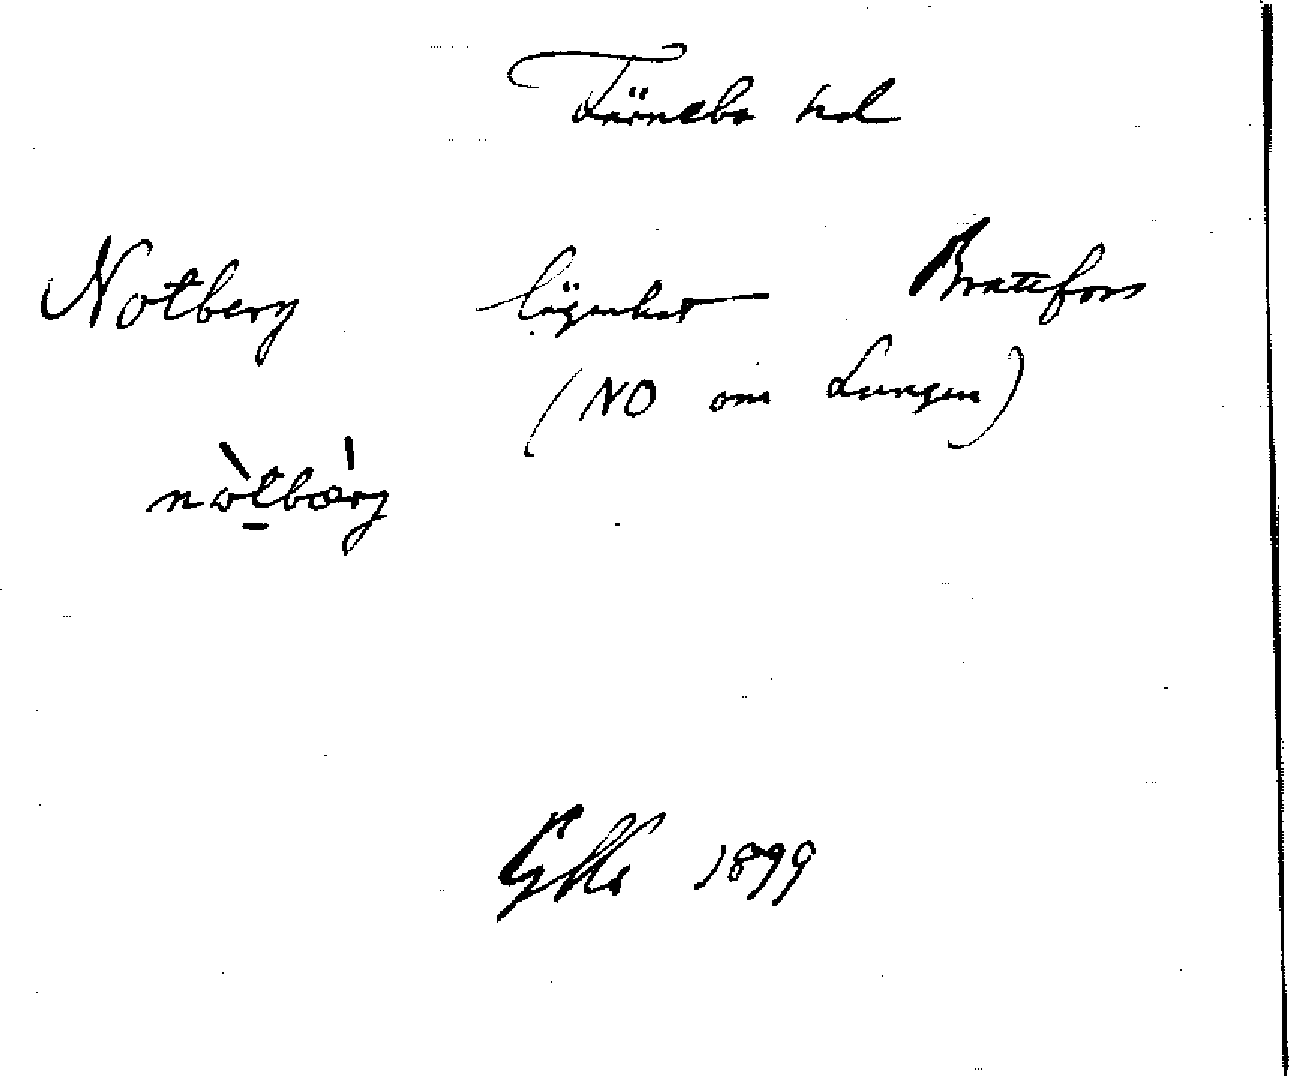 Färnebo hd
Notberg lägenhet Brattfors
(NO om Lungen)
nòtbærg
1899